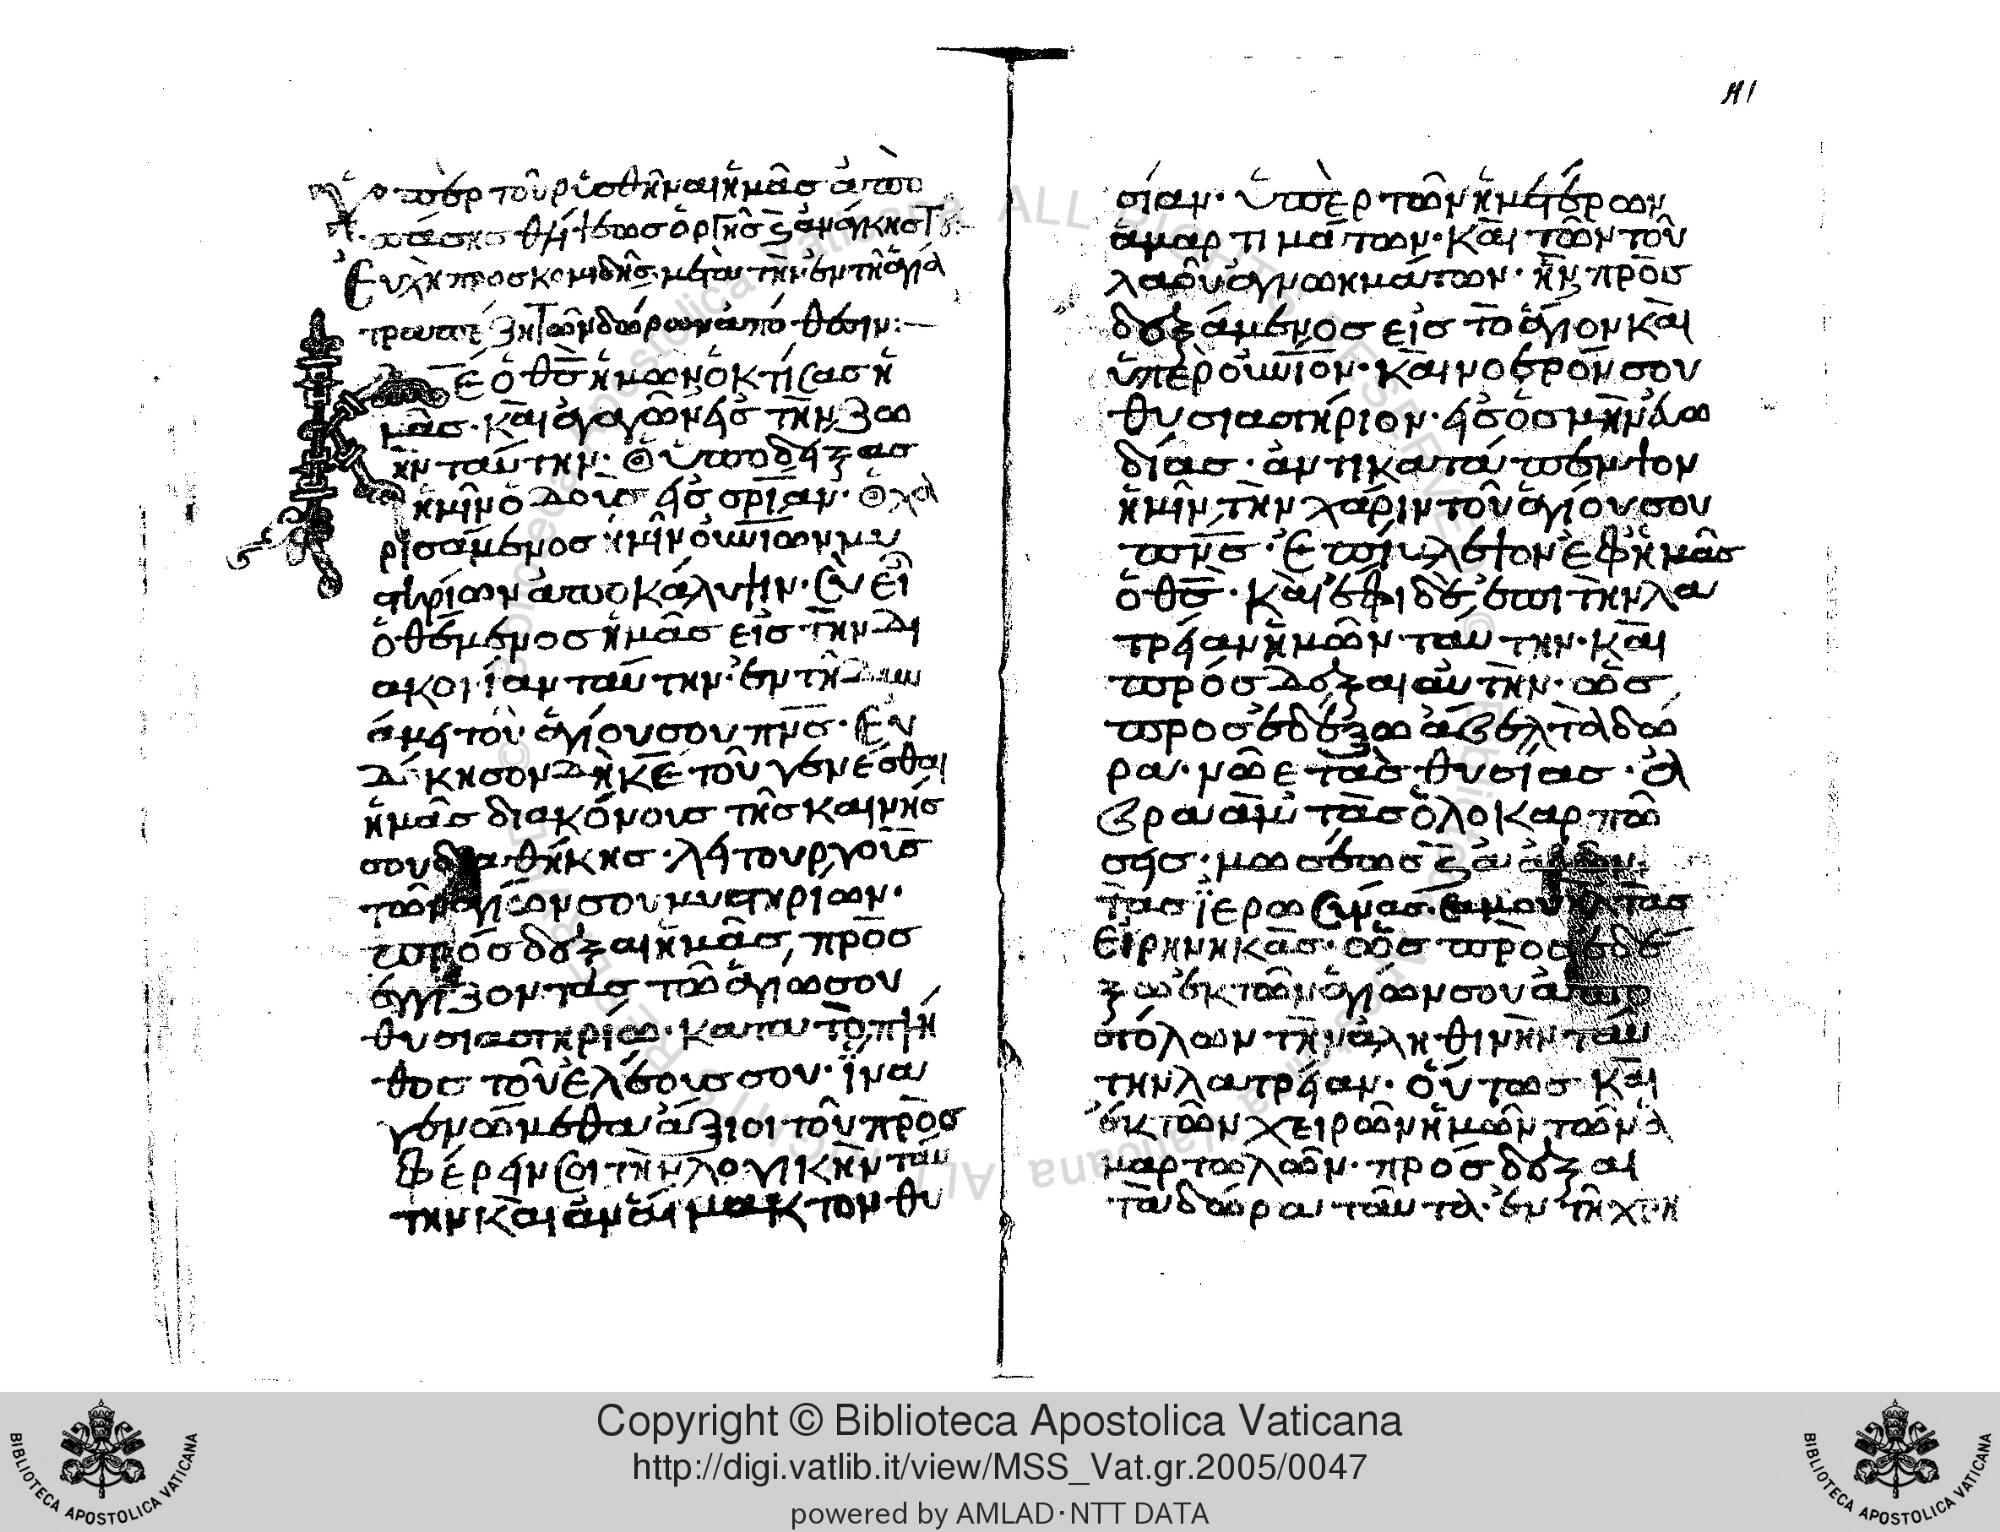 Ὑπὲρ τοῦ ῥυσθῆναι ἡμᾶς ἀπὸ
πάσης θλίψεως ὀργῆς ἀνάγκης
Εὐχὴ προσκομιδῆς· μετὰ τὴν ἐν τῇ ἁγίᾳ
τραπέζη τῶν δώρων ἀπόθεσιν:—
Κε ὁ θς ἡμῶν ὁ κτίσας ἡ
μᾶς· καὶ ἀγαγὼν εἰς τὴν ζω
ὴν ταύτην· ὁ ὑποδείξας
ἡμῖν ὁδοὺς εἰς σρίαν· ὁ χα
ρισάμενος ἡμῖν οὐνίων μυ
στηρίων ἀποκάλυψιν· Σὺ εἶ
ὁ θέμενος ἡμᾶς εἰς τὴν δι
ακονίαν ταύτην· ἐν τῇ δυν
άμει τοῦ ἁγίου σου πνς· Εὐ
δόκησον δὴ κε τοῦ γενέσθαι
ἡμᾶς διακόνους τῆς καινῆς
σου διαθήκης· λειτουργοὺς
τῶν ἁγίων σου μυστηρίων·
πρόσδεξαι ἡμᾶς, προσ
εγγίζοντας τῶ ἁγίω σου
θυσιαστηρίω· κατὰ τὸ πλῆ
θος τοῦ ἐλέους σου· ἵνα
γενώμεθα ἄξιοι τοῦ προσ
φέρειν σοι τὴν λογικὴν ταύ
την καὶ ἀναίμακτον θυ
σίαν· ὑπὲρ τῶν ἡμετέρων
ἁμαρτιμάτων· καὶ τῶν τοῦ
λαοῦ ἀγνωημάτων· ἣν προσ
δεξάμενος εἰς τὸ ἅγιον καὶ
ὑπερουνιον· καὶ νοερόν σου
θυσιαστήριον· εἰς ὀσμὴν εὐω
δίας· ἀντικατάπεμψον
ἡμῖν τὴν χάριν τοῦ ἁγίου σου
πνς· Ἐπίβλεψον ἐφ' ἡμᾶς
ὁ θς· καὶ ἔφιδε ἐπὶ τὴν λα
τρείαν ἡμῶν ταύτην· καὶ
πρόσδεξαι αὐτὴν· ὡς
προσεδέξω ἄβελ τὰ δῶ
ρα· νῶε τὰς θυσίας· ἀ
βραὰμ τὰς ὁλοκαρπώ
σεις· μωσέως καὶ ἀαρὼν
τὰς ἱερωσύνας· σαμουὴλ τὰς
εἰρηνικάς· ὡς προσεδέ
ξω ἐκ τῶν ἁγίων σου ἀπο
στόλων τὴν ἀληθινὴν ταύ
την λατρείαν· οὕτως καὶ
ἐκ τῶν χειρῶν ἡμῶν τῶν ἁ
μαρτωλῶν· πρόσδεξαι
τὰ δῶρα ταῦτα· ἐν τῇ χρη
Copyright © Biblioteca Apostolica Vaticana
http://digi.vatlib.it/view/MSS_Vat.gr.2005/0047
powered by AMLAD·NTT DATA
BIBLIOTECA APOSTOLICA VATICANA
BIBLIOTECA APOSTOLICA VATICANA